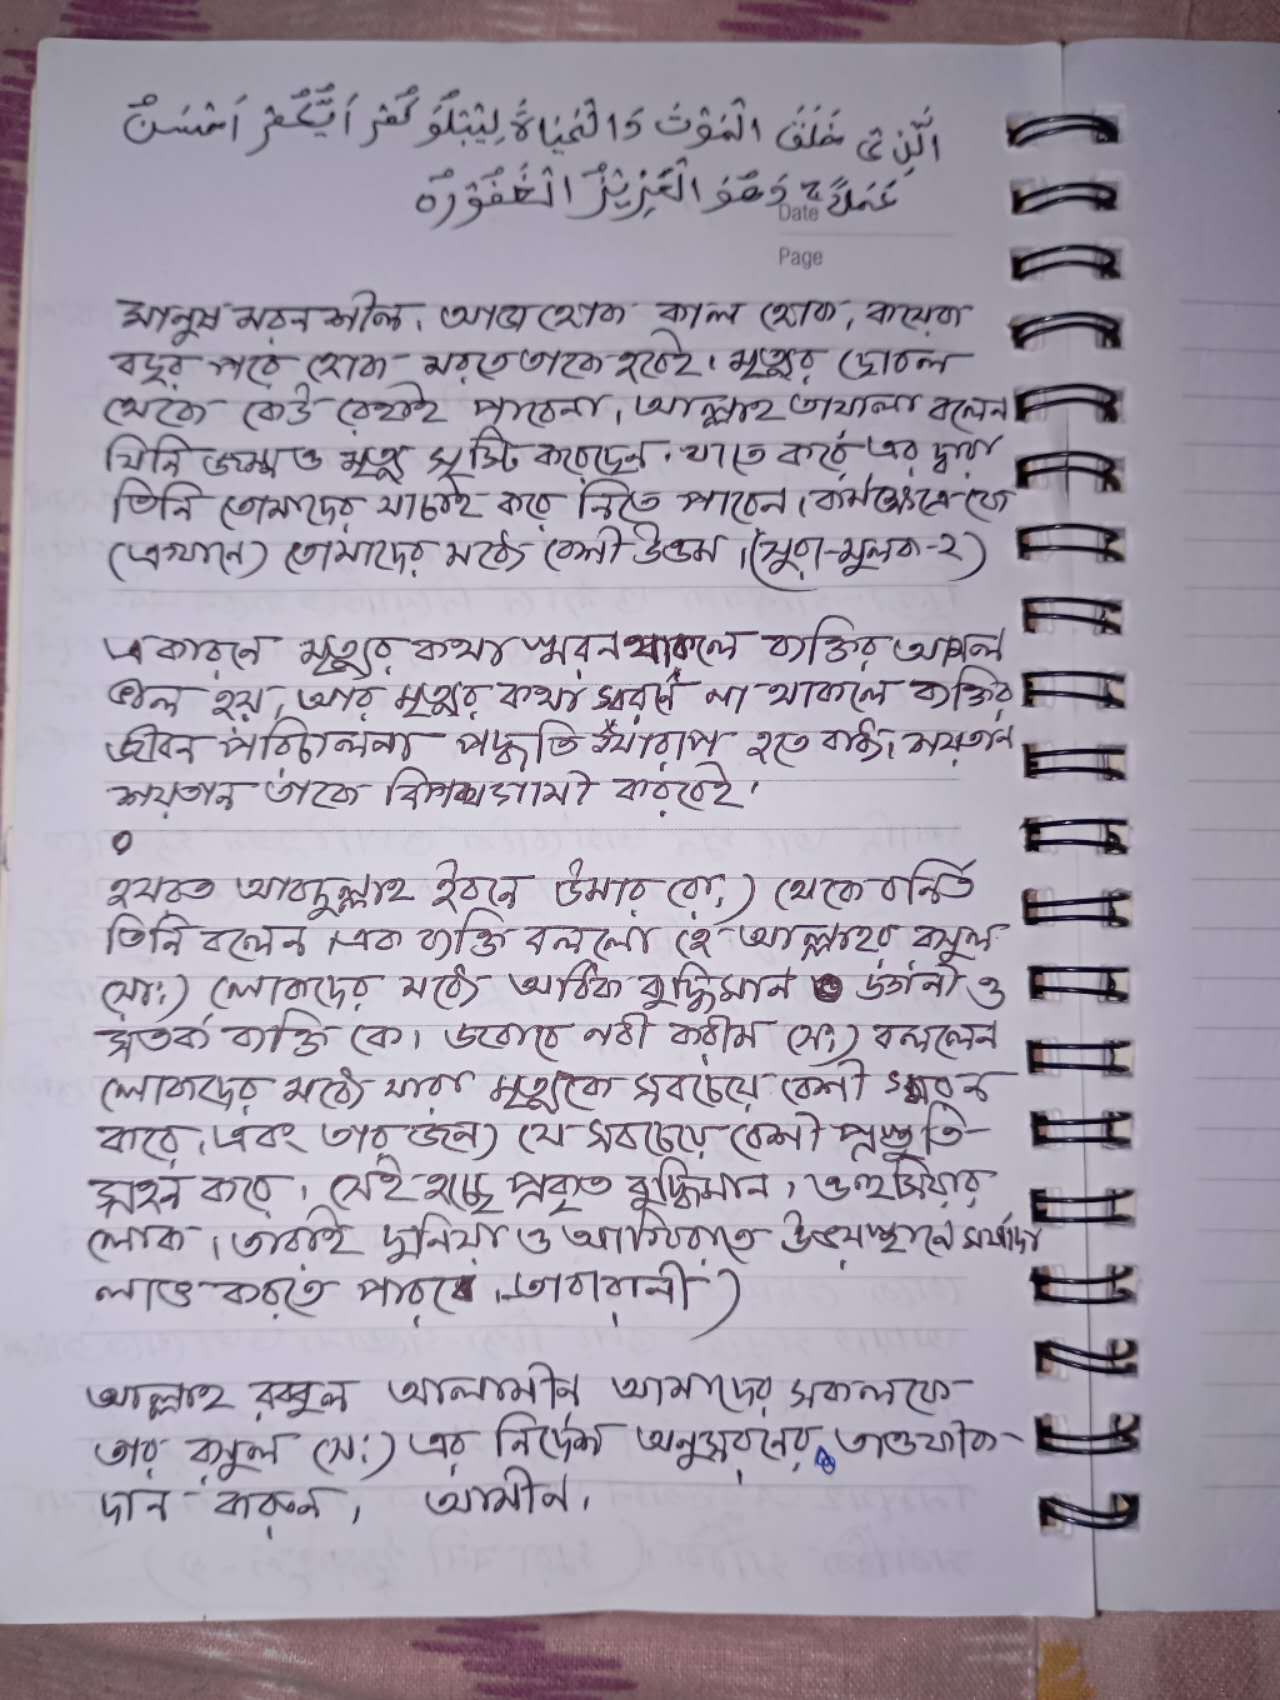 اَلَّذِىْ خَلَقَ الْمَوْتَ وَالْحَيٰاةَ لِيَبْلُوَ كُمْ اَيُّكُمْ اَحْسَنُ
عَمَلًا ج وَهُوَ الْعَزِيْزُ الْغَفُوْرُه
Date
Page
মানুষ মরনশীল। আজ হোক কাল হোক, কয়েক
বছর পরে হোক মরতে তাকে হবেই। মৃত্যুর ছোবল
থেকে কেউ রেহাই পাবেনা। আল্লাহ তায়ালা বলেন
যিনি জন্ম ও মৃত্যু সৃষ্টি করেছেন। যাতে করে এর দ্বারা
তিনি তোমাদের যাচাই করে নিতে পারেন। কর্মক্ষেত্রে কে
(এখানে) তোমাদের মধ্যে বেশী উত্তম। (সুরা-মুলক-২)
একারনে মৃত্যুর কথা স্মরন থাকলে ব্যক্তির আমল
ভাল হয়, আর মৃত্যুর কথা স্মরণে না থাকলে ব্যক্তির
জীবন পরিচালনা পদ্ধতি খারাপ হতে বাধ্য। শয়তান
শয়তান তাকে বিপথগামী করবেই।
০
হযরত আবদুল্লাহ ইবনে উমার (রা:) থেকে বর্নিত
তিনি বলেন। এক ব্যক্তি বললো হে আল্লাহর রসুল
(সা:) লোকদের মধ্যে অধিক বুদ্ধিমান ও জ্ঞানী ও
সতর্ক ব্যক্তি কে। জবাবে নবী করীম (স:) বললেন
লোকদের মধ্যে যারা মৃত্যুকে সবচেয়ে বেশী স্মরন
করে, এবং তার জন্য যে সবচেয়ে বেশী প্রস্তুতি
গ্রহন করে, সেই হচ্ছে প্রকৃত বুদ্ধিমান, ও হুসিয়ার
লোক। তারাই দুনিয়া ও আখিরাতে উভয়স্থানে মর্যাদা
লাভ করতে পারবে। তাবারানী)
আল্লাহ রব্বুল আলামীন আমাদের সকলকে
তার রসুল (স:) এর নির্দেশ অনুসরনের তাওফীক
দান করুন, আমীন।